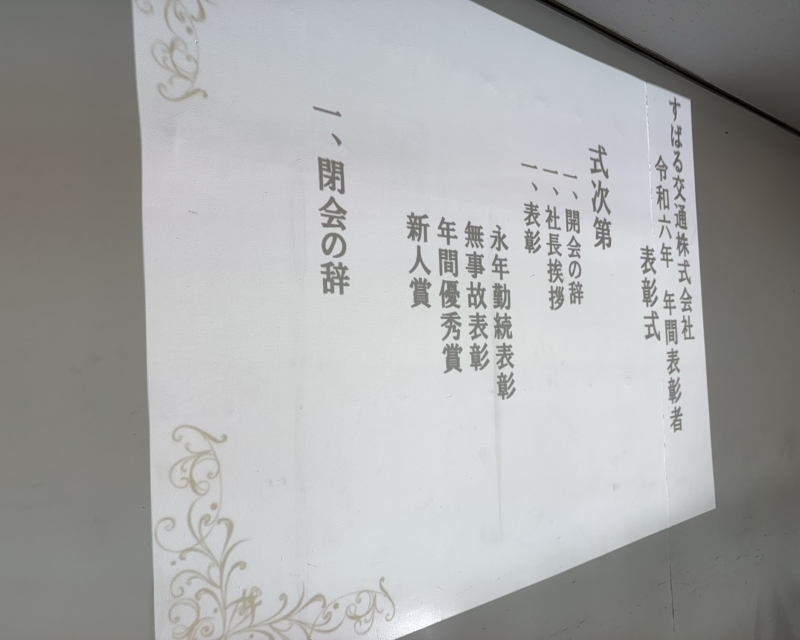 すばる交通株式会社
令和六年 年間表彰者
表彰式
式次第
一、開会の辞
一、社長挨拶
一、表彰
永年勤続表彰
無事故表彰
年間優秀賞
新人賞
一、閉会の辞